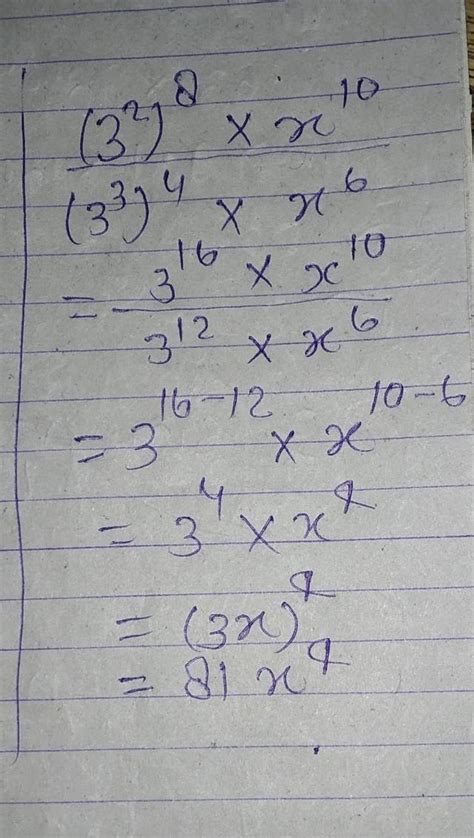 (3²)⁸ × x¹⁰
(3³)⁴ × x⁶
= 3¹⁶ × x¹⁰
3¹² × x⁶
= 3¹⁶⁻¹² × x¹⁰⁻⁶
= 3⁴ × x⁴
= (3x)⁴
= 81 x⁴